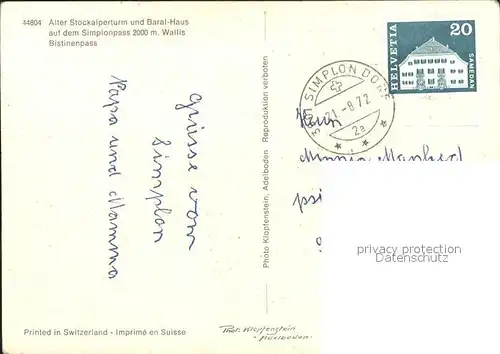 44804 Alter Stockalperturm und Baral-Haus
auf dem Simplonpass 2000 m. Wallis
Bistinenpass
Grüsse vom
Simplon
Papa und Mamma
Photo Klopfenstein, Adelboden Reproduktion verboten
HELVETIA
20
SAMEDAN
SIMPLON DORF
21.-8 72
2a
privacy protection
Datenschutz
Printed in Switzerland - Imprimé en Suisse
Phot. Klopfenstein
Adelboden